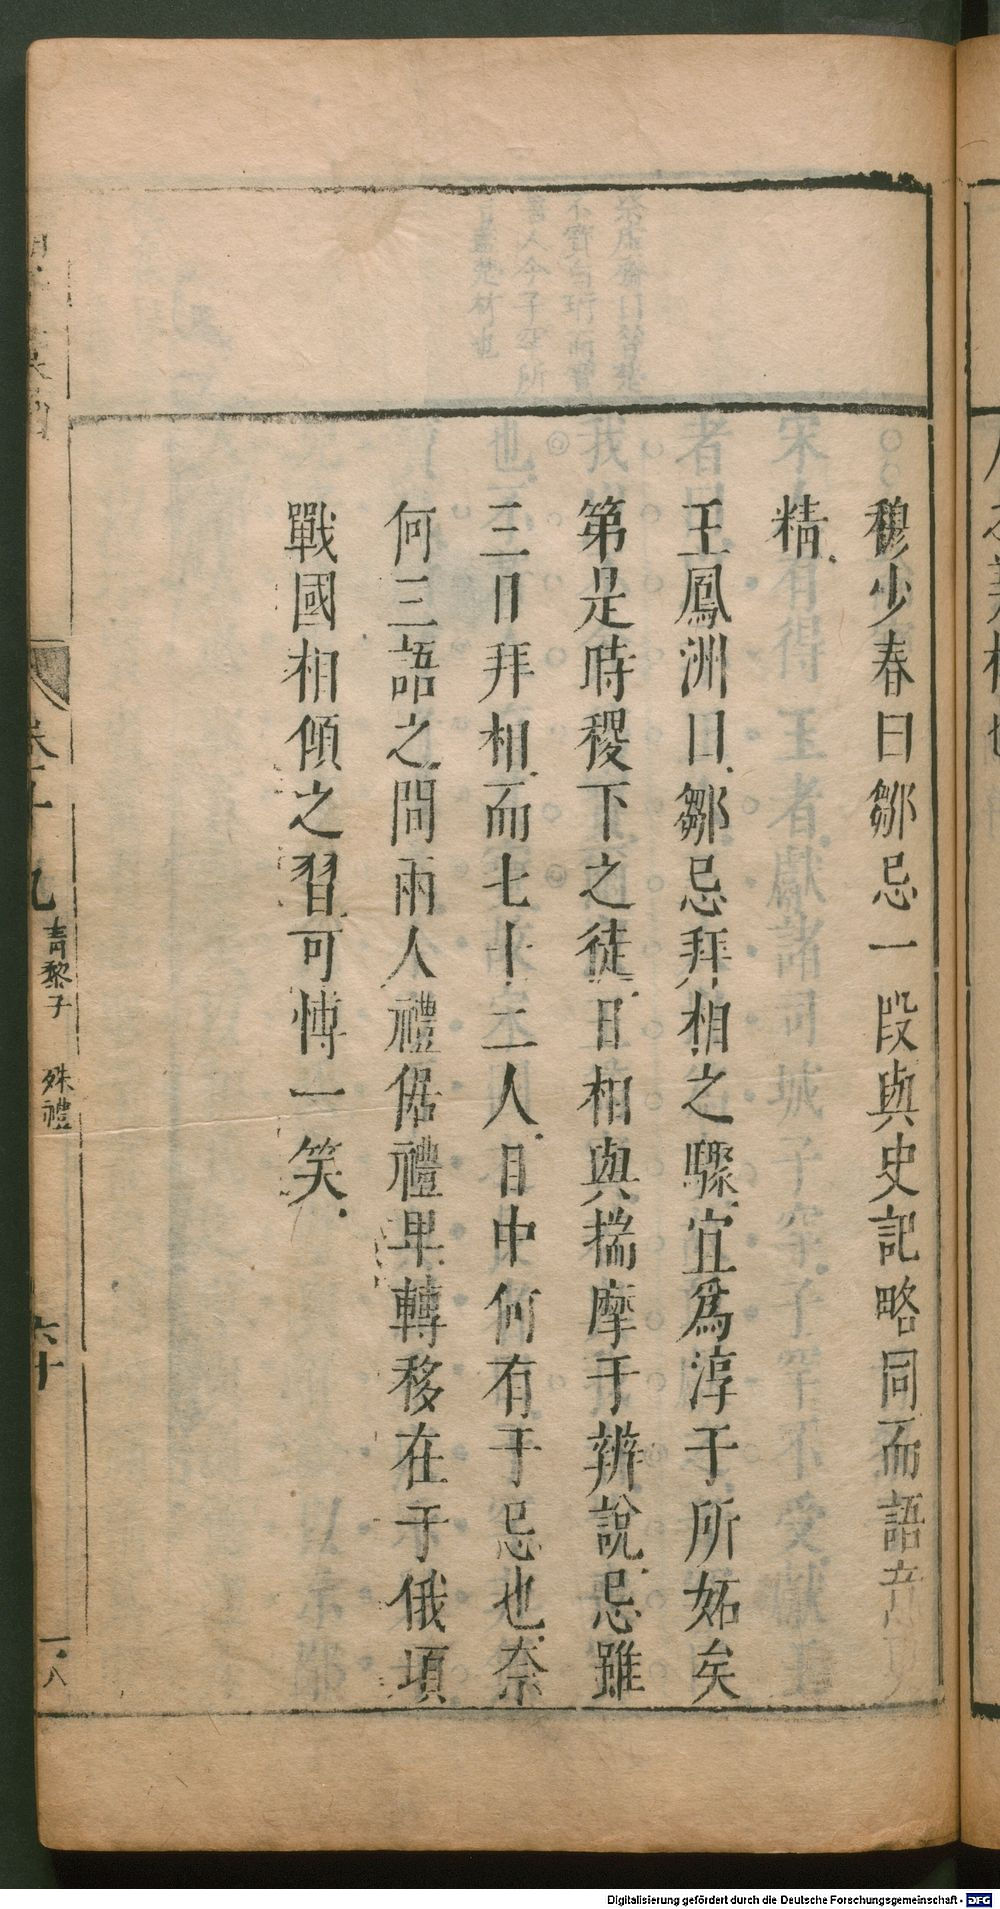 穆少春曰鄒忌一段與史記略同而語意更
精
王鳳洲曰鄒忌拜相之驟宜爲淳于所妬矣
第是時稷下之徒日相與揣摩于辨說忌雖
三日拜相而七十二人目中何有于忌也奈
何三語之間兩人禮倨禮卑轉移在于俄頃
戰國相傾之習可愽一笑
青黎子 殊禮
六十
一八
Digitalisierung gefördert durch die Deutsche Forschungsgemeinschaft - DFG